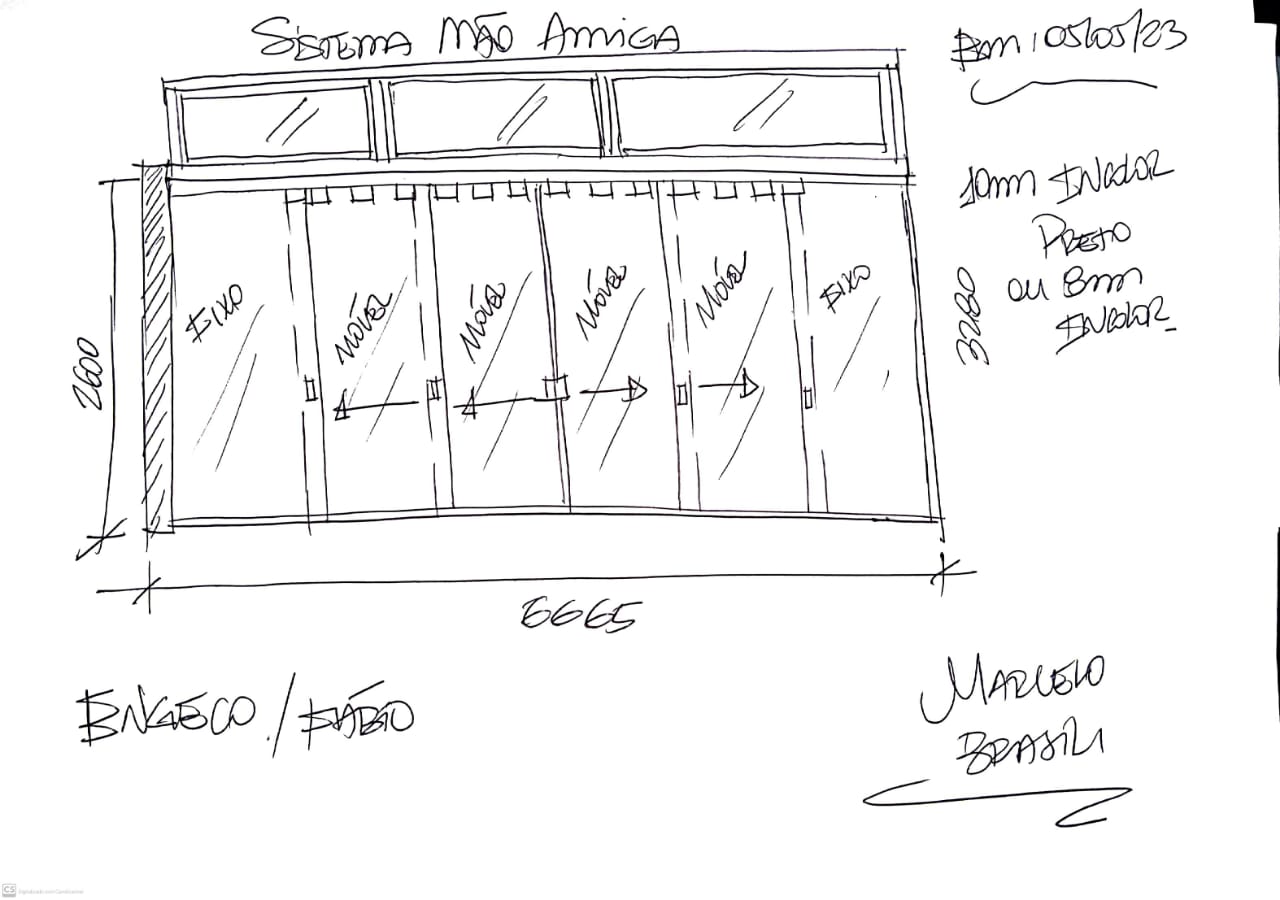 SISTEMA MÃO AMIGA
Bm, 05/05/23
10mm INCOLOR
PRETO
ou 8mm
INCOLOR
2600
3280
FIXO
MÓVEL
MÓVEL
MÓVEL
MÓVEL
FIXO
6665
ENGECO / FÁBIO
MARCELO
BRASILI
CS Digitalizado com CamScanner